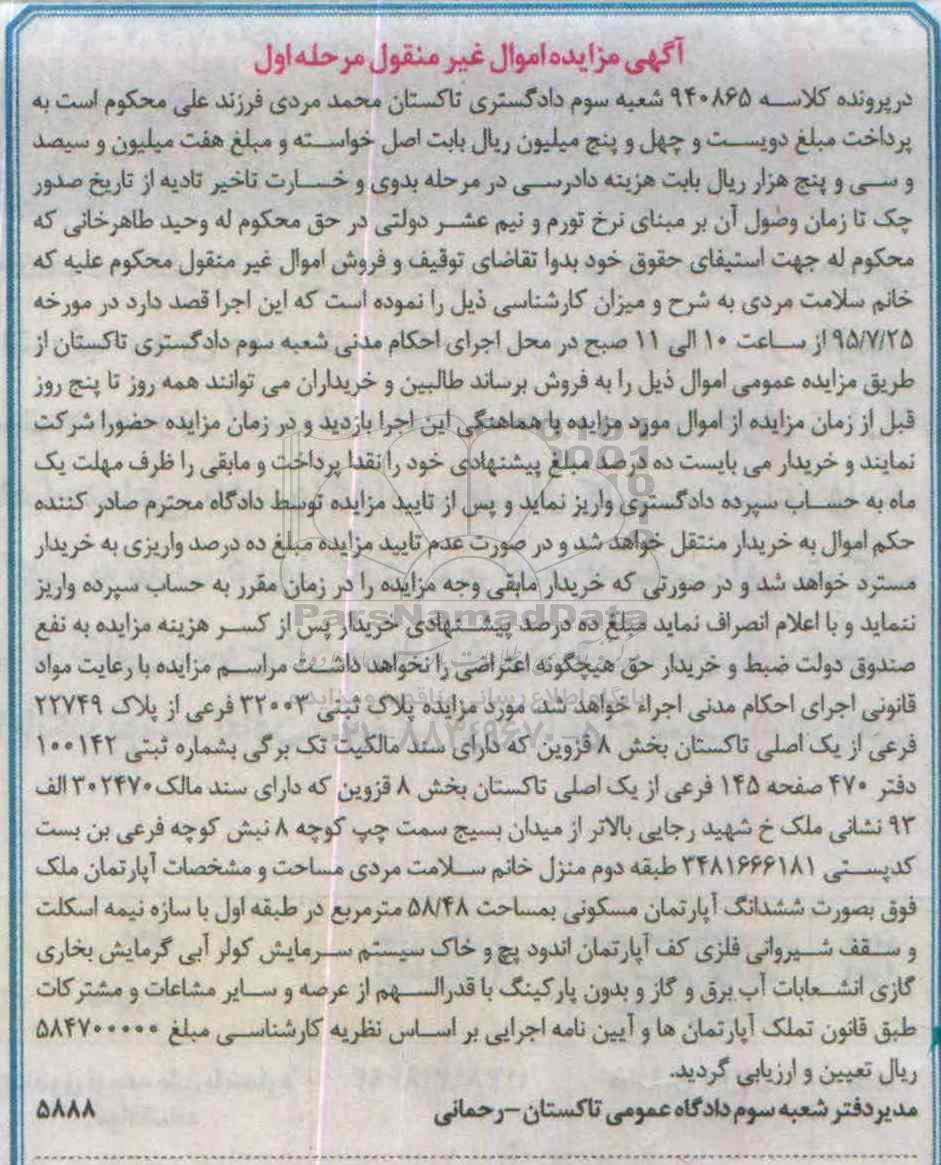 آگهی مزایده اموال غیر منقول مرحله اول
در پرونده کلاسه ۹۴۰۸۶۵ شعبه سوم دادگستری تاکستان محمد مردی فرزند علی محکوم است به
پرداخت مبلغ دویست و چهل و پنج میلیون ریال بابت اصل خواسته و مبلغ هفت میلیون و سیصد
و سی و پنج هزار ریال بابت هزینه دادرسی در مرحله بدوی و خسارت تاخیر تادیه از تاریخ صدور
چک تا زمان وصول آن بر مبنای نرخ تورم و نیم عشر دولتی در حق محکوم له وحید طاهرخانی که
محکوم له جهت استیفای حقوق خود بدوا تقاضای توقیف و فروش اموال غیر منقول محکوم علیه که
خانم سلامت مردی به شرح و میزان کارشناسی ذیل را نموده است که این اجرا قصد دارد در مورخه
۹۵/۷/۲۵ از ساعت ۱۰ الی ۱۱ صبح در محل اجرای احکام مدنی شعبه سوم دادگستری تاکستان از
طریق مزایده عمومی اموال ذیل را به فروش برساند طالبین و خریداران می توانند همه روز تا پنج روز
قبل از زمان مزایده از اموال مورد مزایده با هماهنگی این اجرا بازدید و در زمان مزایده حضورا شرکت
نمایند و خریدار می بایست ده درصد مبلغ پیشنهادی خود را نقدا پرداخت و مابقی را ظرف مهلت یک
ماه به حساب سپرده دادگستری واریز نماید و پس از تایید مزایده توسط دادگاه محترم صادر کننده
حکم اموال به خریدار منتقل خواهد شد و در صورت عدم تایید مزایده مبلغ ده درصد واریزی به خریدار
مسترد خواهد شد و در صورتی که خریدار مابقی وجه مزایده را در زمان مقرر به حساب سپرده واریز
ننماید و با اعلام انصراف نماید مبلغ ده درصد پیشنهادی خریدار پس از کسر هزینه مزایده به نفع
صندوق دولت ضبط و خریدار حق هیچگونه اعتراضی را نخواهد داشت مراسم مزایده با رعایت مواد
قانونی اجرای احکام مدنی اجراء خواهد شد. مورد مزایده پلاک ثبتی ۳۲۰۰۳ فرعی از پلاک ۲۲۷۴۹
فرعی از یک اصلی تاکستان بخش ۸ قزوین که دارای سند مالکیت تک برگی بشماره ثبتی ۱۰۰۱۴۲
دفتر ۴۷۰ صفحه ۱۴۵ فرعی از یک اصلی تاکستان بخش ۸ قزوین که دارای سند مالک ۳۰۲۴۷۰ الف
۹۳ نشانی ملک خ شهید رجایی بالاتر از میدان بسیج سمت چپ کوچه ۸ نبش کوچه فرعی بن بست
کدپستی ۳۴۸۱۶۶۶۱۸۱ طبقه دوم منزل خانم سلامت مردی مساحت و مشخصات آپارتمان ملک
فوق بصورت ششدانگ آپارتمان مسکونی بمساحت ۵۸/۴۸ مترمربع در طبقه اول با سازه نیمه اسکلت
و سقف شیروانی فلزی کف آپارتمان اندود پچ و خاک سیستم سرمایش کولر آبی گرمایش بخاری
گازی انشعابات آب برق و گاز و بدون پارکینگ با قدرالسهم از عرصه و سایر مشاعات و مشترکات
طبق قانون تملک آپارتمان ها و آیین نامه اجرایی بر اساس نظریه کارشناسی مبلغ ۵۸۴۷۰۰۰۰۰
ریال تعیین و ارزیابی گردید.
مدیردفتر شعبه سوم دادگاه عمومی تاکستان-رحمانی
۵۸۸۸
ParsNamadData